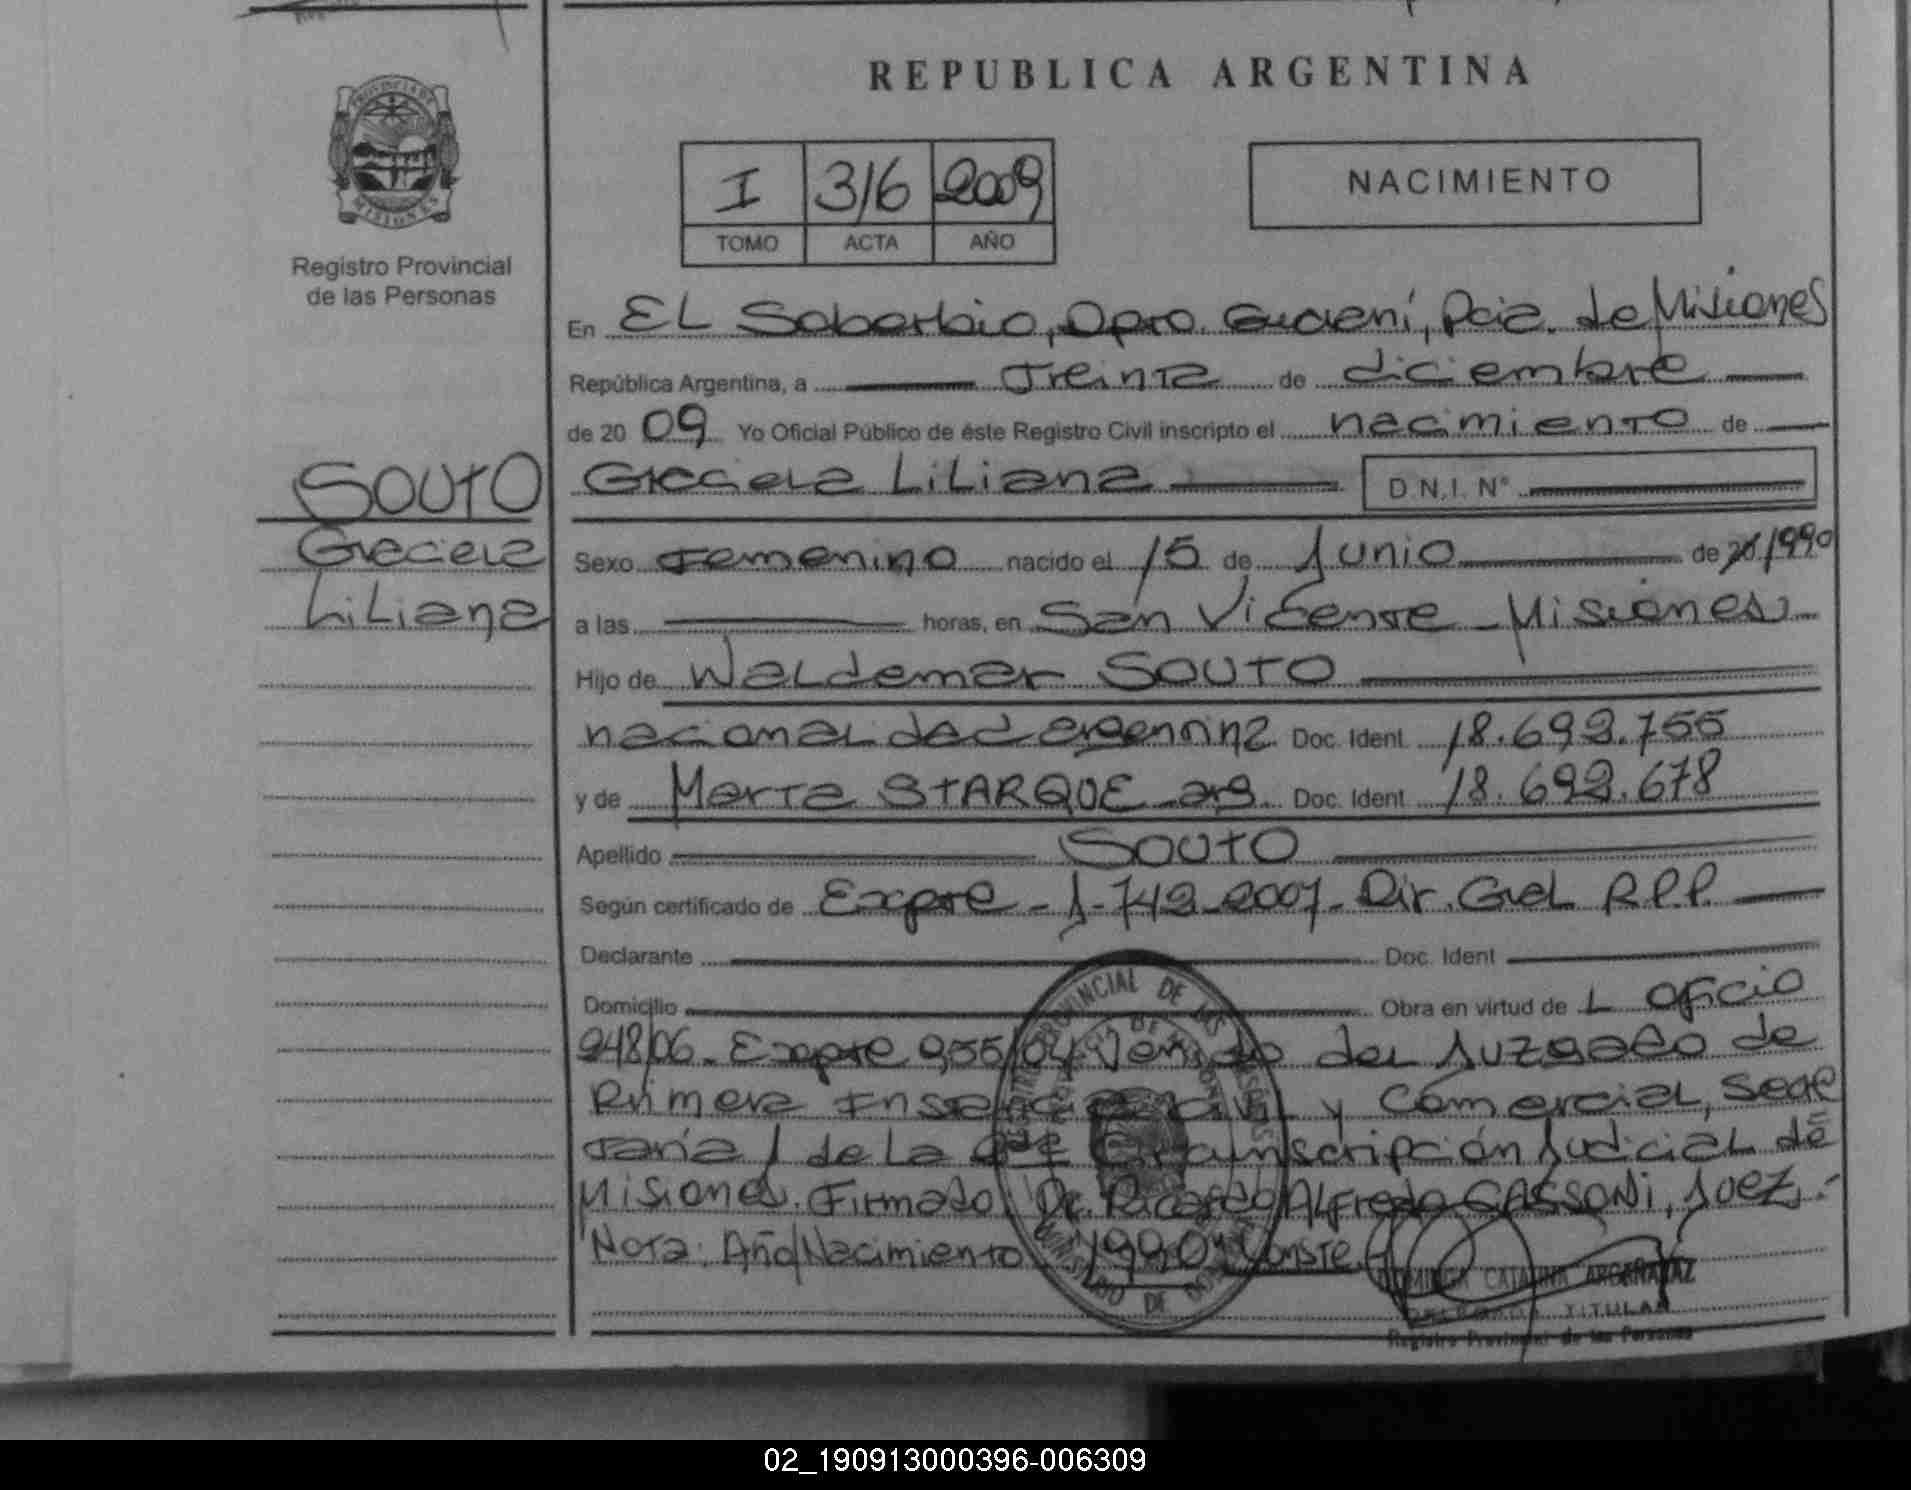 REPUBLICA ARGENTINA
PROVINCIA DE
MISIONES
Registro Provincial
de las Personas
I 316 2009
TOMO ACTA AÑO
NACIMIENTO
En EL Soberbio, Dpto. Guaraní, Pcia. de Misiones
República Argentina, a treinta de diciembre
de 20 09 Yo Oficial Público de éste Registro Civil inscripto el nacimiento de
SOUTO
Graciela
Liliana
Graciela Liliana D.N.I. N°
Sexo Femenino nacido el 15 de Junio de 20 1990
a las horas, en San Vicente - Misiones
Hijo de Waldemar SOUTO
nacionalidad argentina Doc. Ident. 18.692.755
y de Marta STARQUE - arg Doc. Ident. 18.692.678
Apellido SOUTO
Según certificado de Expte - 1-742-2007- Dir. Gral. R.P.P.
Declarante Doc. Ident
Domicilio Obra en virtud de L oficio
248/06. Expte 955/04 Venido del Juzgado de
Primera Instancia Civil y Comercial, Secre
taría 1 de la Circunscripción Judicial de
Misiones. Firmado, Dr. Ricardo Alfredo CASSONI, Juez.-
Nota: Año Nacimiento "1990" Conste.
DOMINGA CATALINA ARGAÑARAZ
DELEGADA TITULAR
Registro Provincial de las Personas
02_190913000396-006309